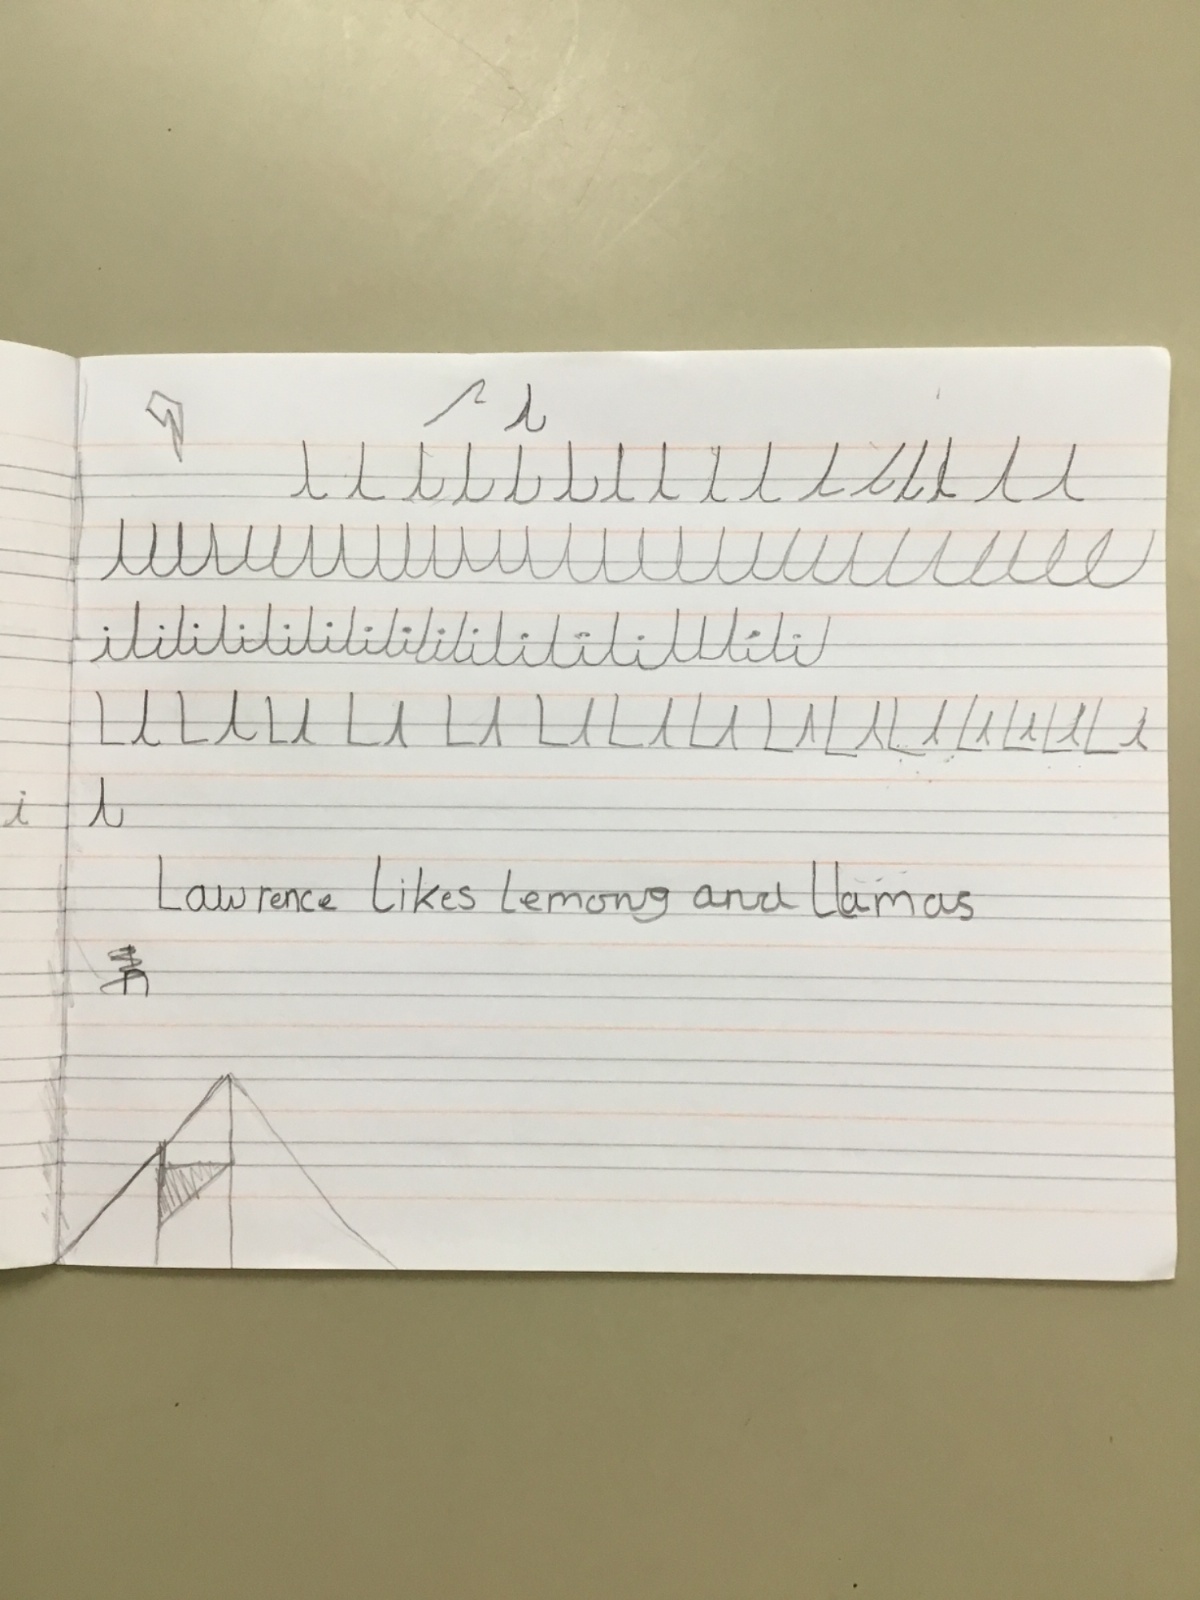 l
l l l l l l l l l l l l l l l l
llllllllllllllllllllll
ililililililililililililllilil
Ll Ll Ll Ll Ll Ll Ll Ll Ll Ll Ll Ll Ll Ll Ll
i l
Lawrence likes lemong and llamas